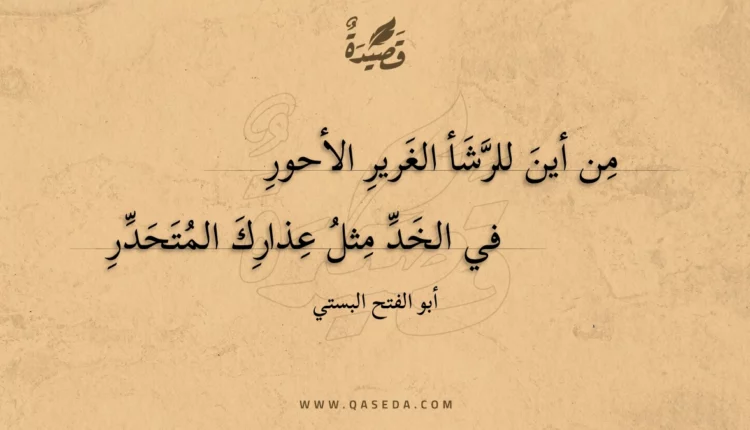 قَصِيدَةٌ
مِن أينَ للرَّشَأ الغَريرِ الأحورِ
في الخَدِّ مِثلُ عِذارِكَ المُتَحَدِّرِ
أبو الفتح البستي
WWW.QASEDA.COM